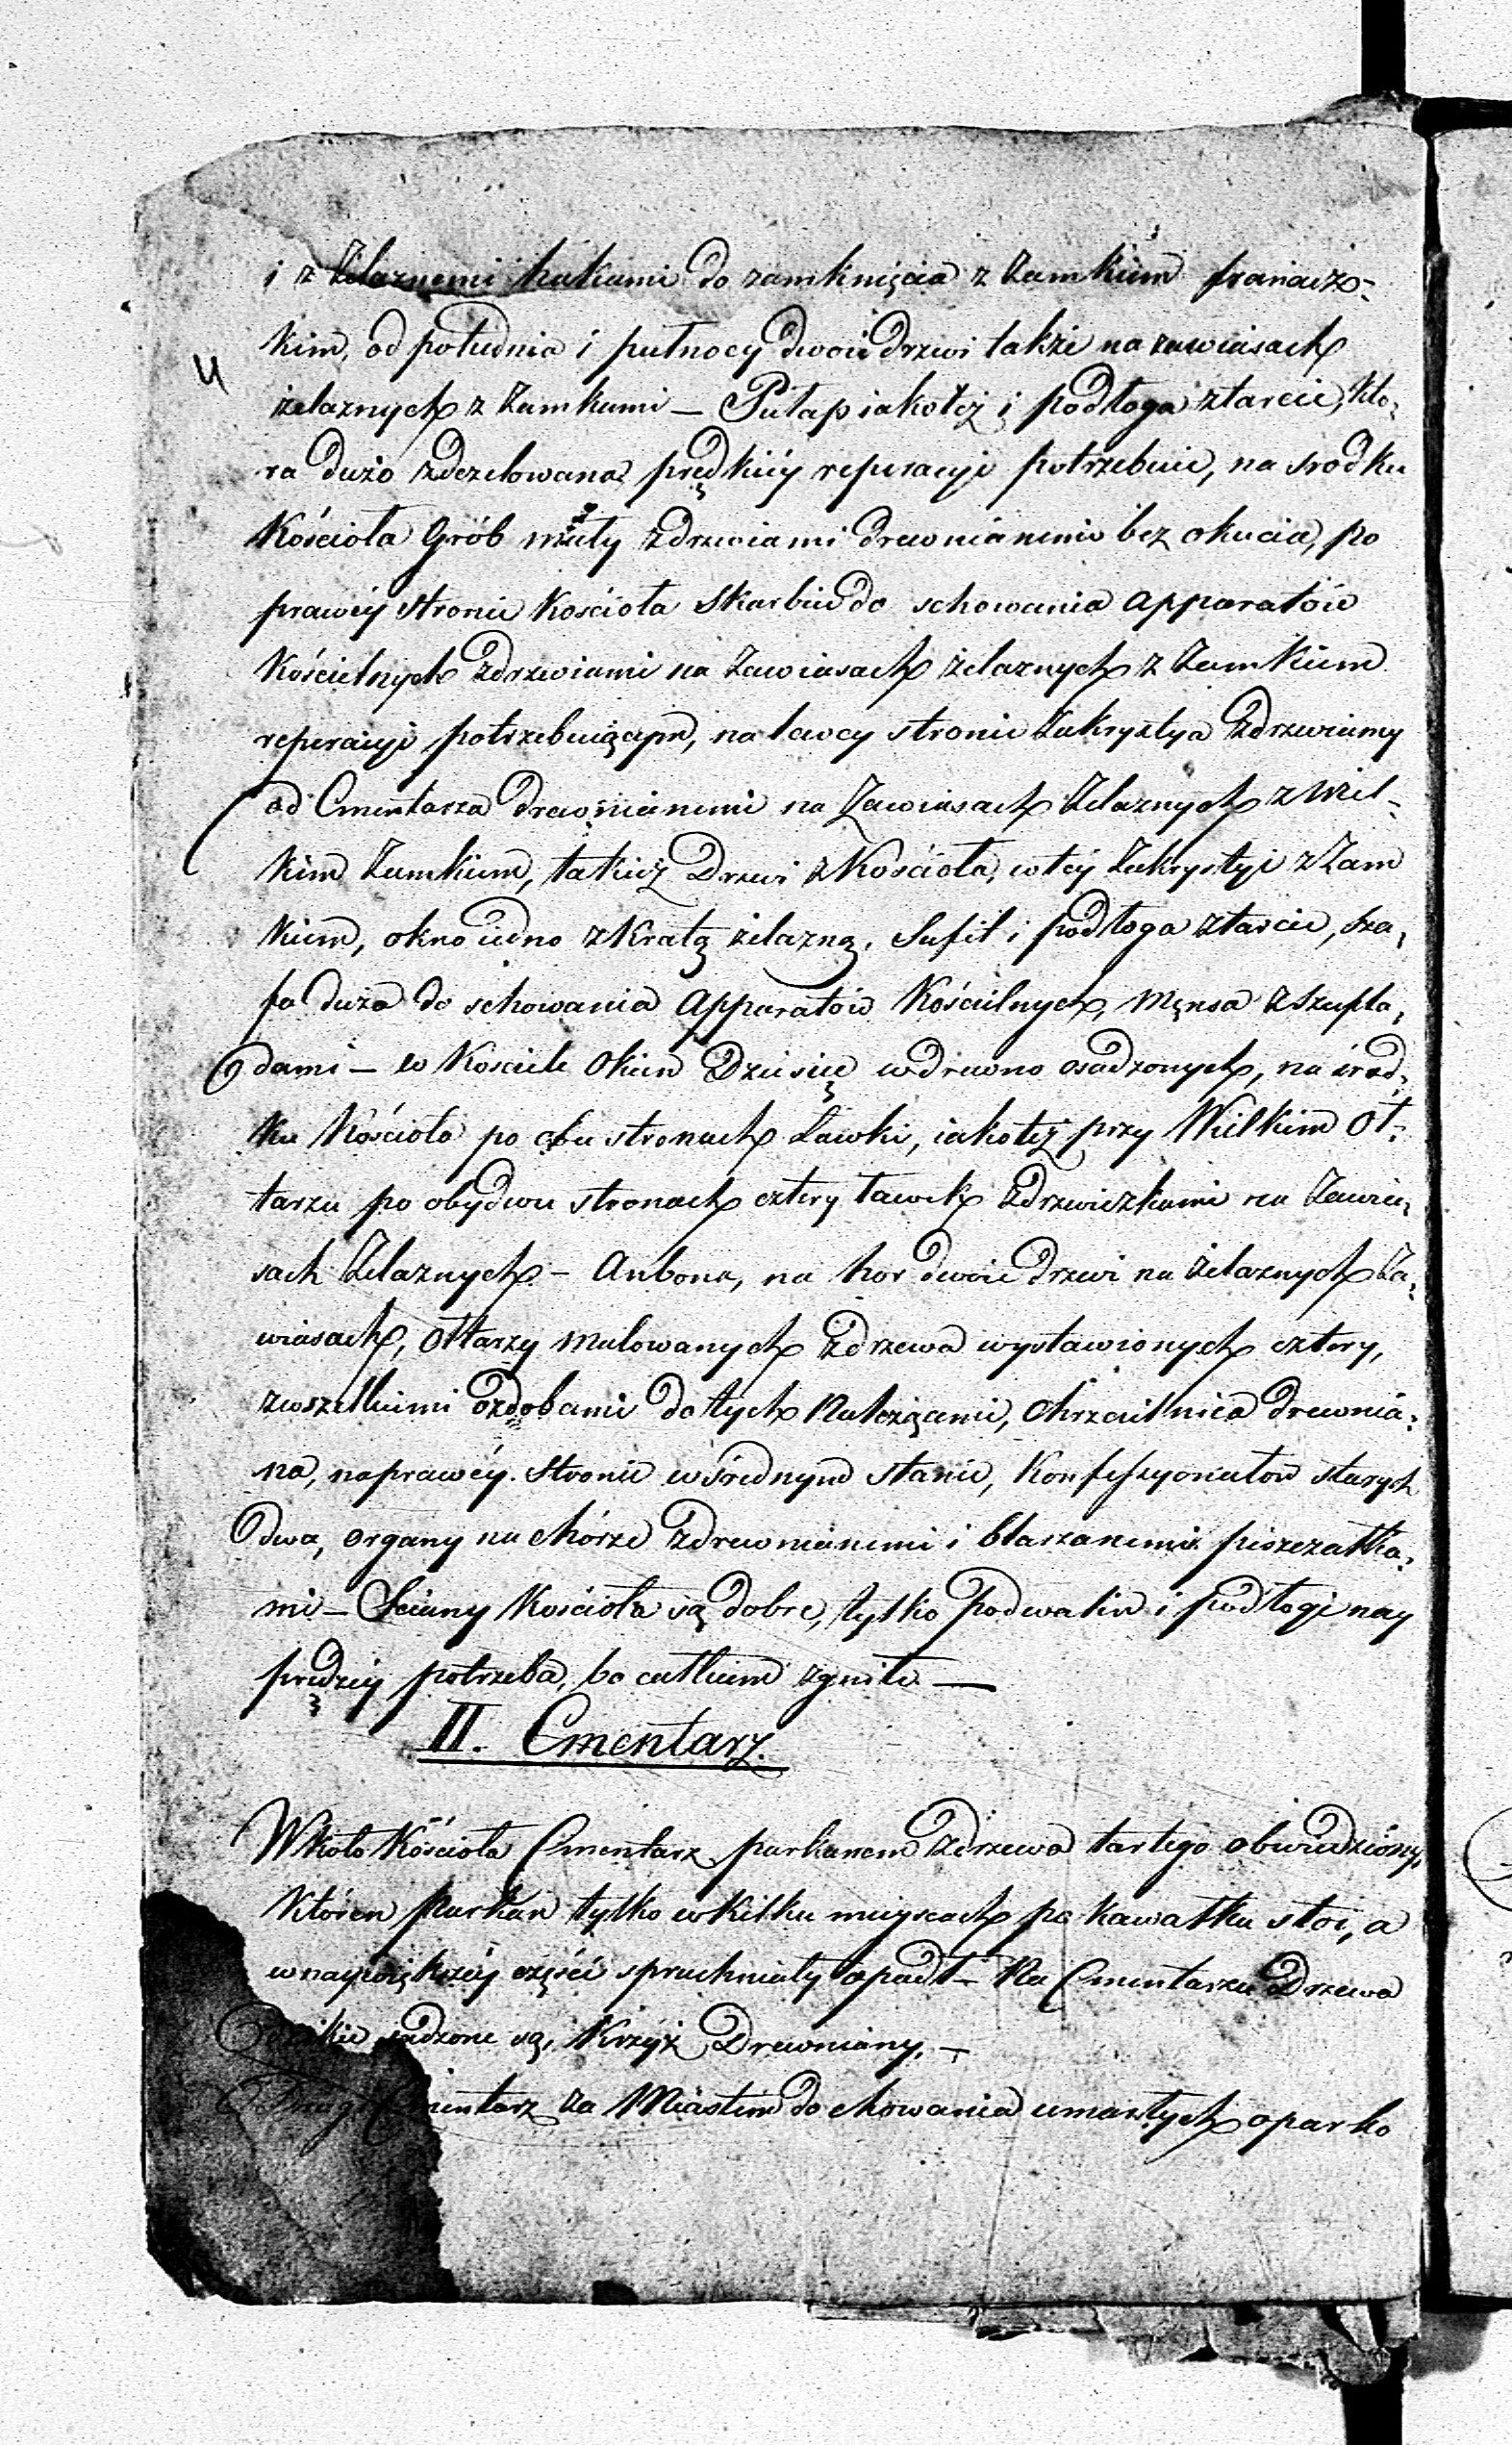 i z żelaznemi hakami do zamknięcia z Zamkiem francuz-
kim, od południa i pułnocy dwoie drzwi także na zawiasach
żelaznych z Zamkami — Pułap iakotéż i podłoga z tarcic, kto-
ra dużo zdezelowana prędkiéy reperacyi potrzebuie, na srodku
Kościoła Grób mały z drzwiami drewnianemi bez okucia, po
prawéy stronie Kościoła Skarbiec do schowania Apparatów
Kościelnych z drzwiami na Zawiasach żelaznych z Zamkiem
reperacyi potrzebuiącym, na lewey stronie Zakrystya z drzwiamy
od Cmentarza drewnianemi na Zawiasach Żelaznych z Wiel-
kim Zamkiem, takież Drzwi z Kościoła, w téy Zakrystyi z Zam
kiem, okno iedno z Kratą żelazną. Sufit i podłoga z tarcic, sza-
fa duża do schowania Apparatów Kościelnych, Męnsa z szufla-
dami — w Kosciele Okien Dziesięć w drewno osadzonych, na środ-
ku Kościoła po obu stronach Ławki, iakotéż przy Wielkim Oł-
tarzu po obydwu stronach cztery ławek z drzwiczkami na Zawia-
sach Żelaznych — Anbona, na hor dwoie drzwi na żelaznych Za-
wiasach, Ołtarzy malowanych z drzewa wystawionych cztery,
z wszelkiemi ozdobami do tych Należącemi, Chrzcielnica drewnia-
na, na prawéy stronie w średnym stanie, Konfessyonałow starych
dwa, organy na chórze z drewnianemi i blaszanemi piszczałka-
mi — Sciany Kościoła są dobre, tylko Podwalin i podłogi nay
prędzéy potrzeba, bo całkiem zgniłe —
II. Cmentarz.
W koło Kościoła Cmentarz parkanem z drzewa tartego obwiedziony,
Któren Parkan tylko w kilku mieyscach po kawałku stoi, a
w naywiększéy części spruchniały opadł — Na Cmentarzu Drzewa
dzikie sadzone są, Krzyż Drewniany. —
Drugi Cmentarz za Miastem do chowania umarłych oparko